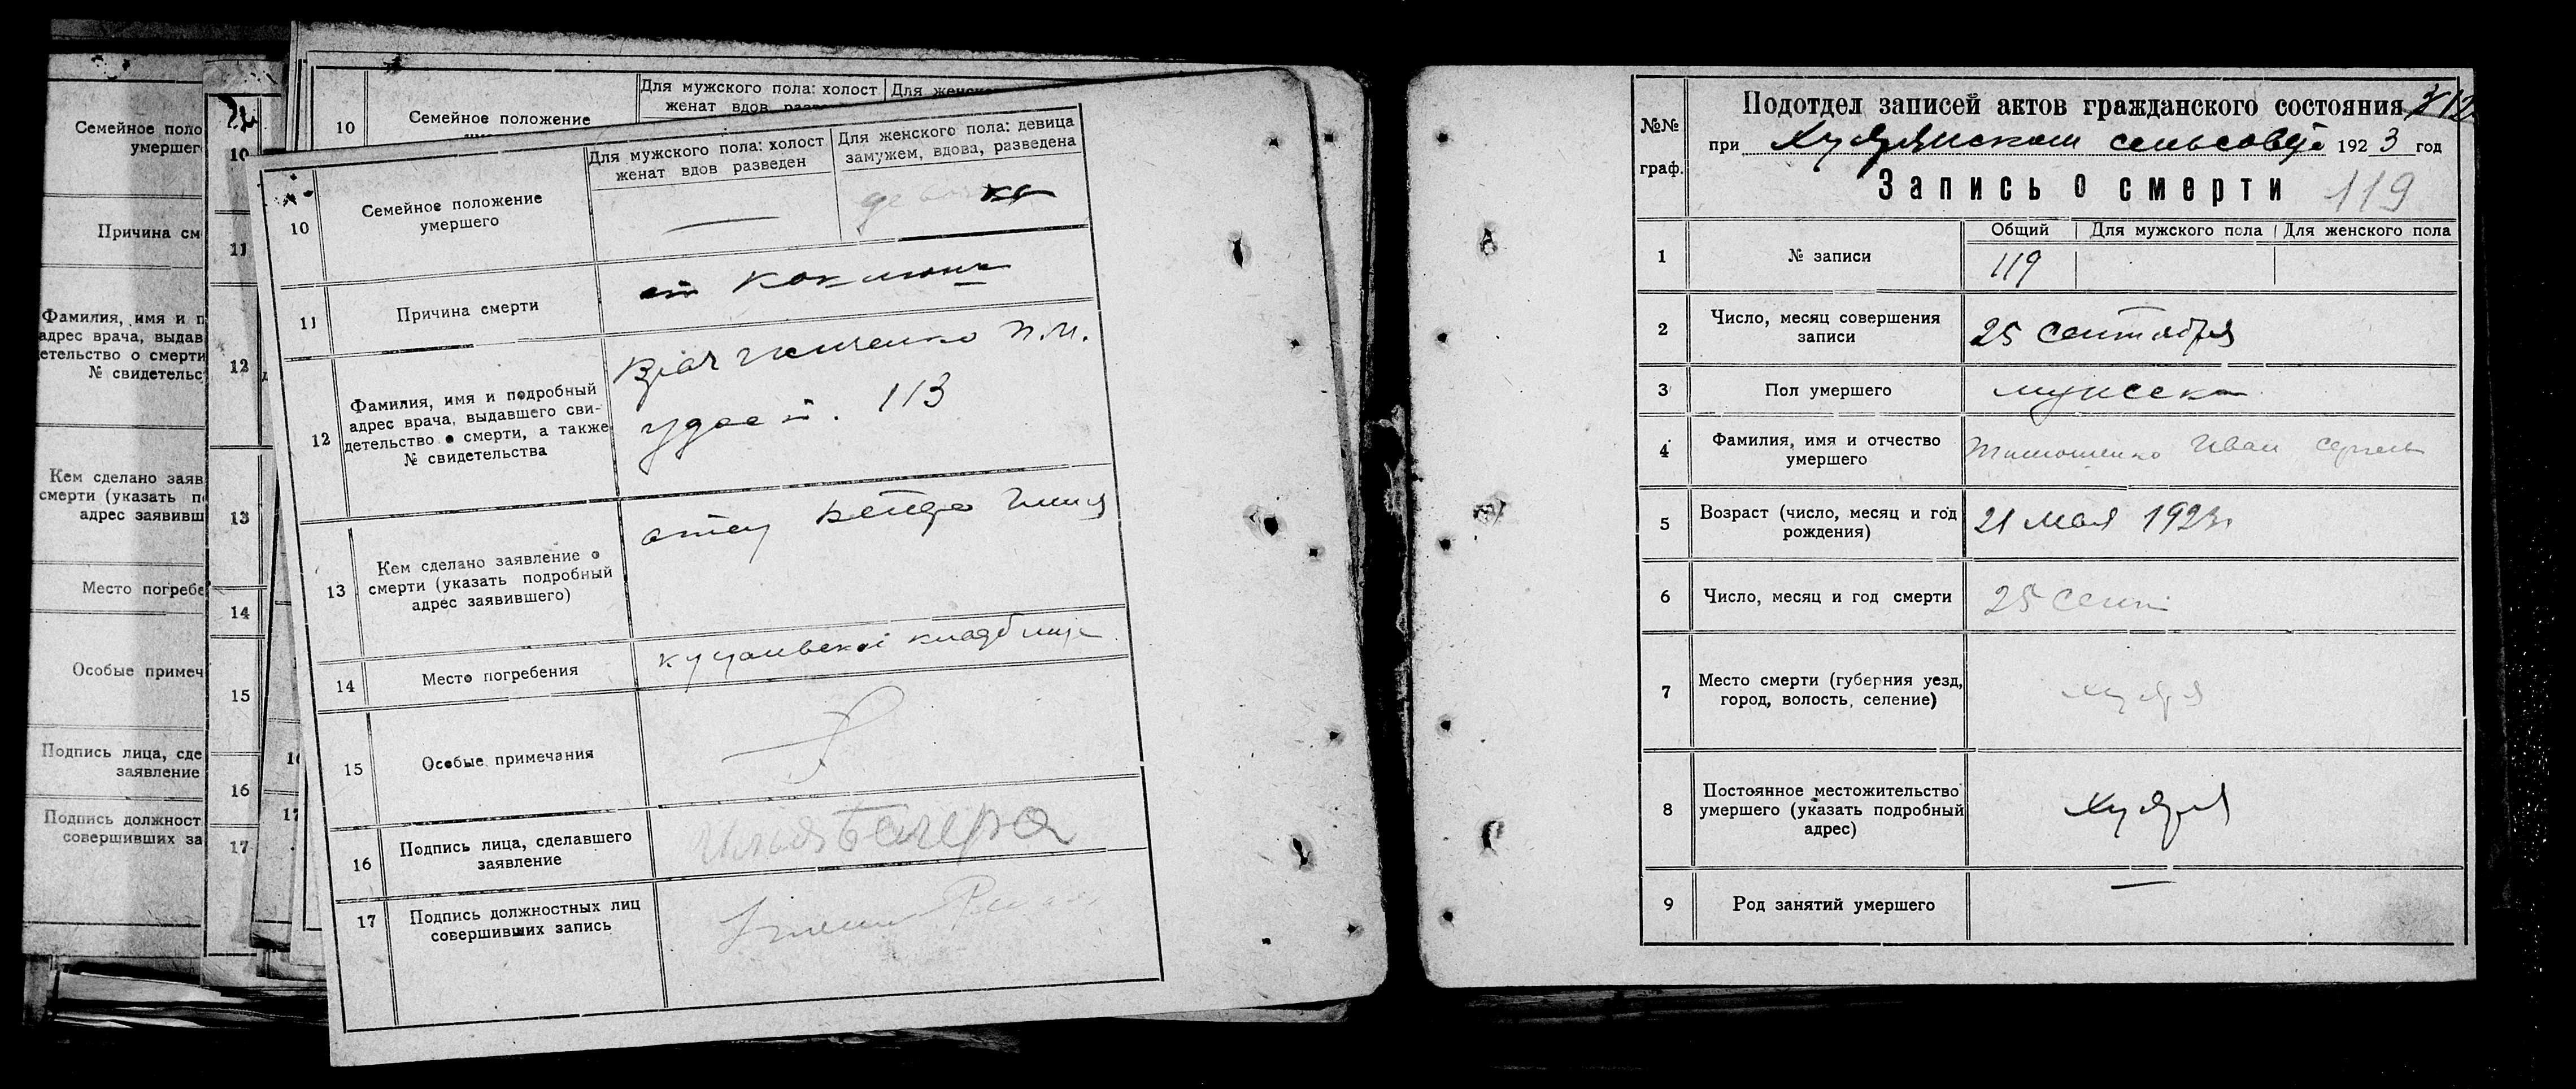 Семейное поло
умершег
Причина см
Фамилия, имя и п
адрес врача, выдав
етельство о смерти
№ свидетельс
Кем сделано заяв
смерти (указать п
адрес заявивш
Место погребе
Особые примеч
Подпись лица, сде
заявление
Подпись должност
совершивших за
10
11
12
13
14
15
16
17
10
Семейное положение
Для мужского пола: холост
женат вдов
Для
10
Семейное положение
умершего
Для мужского пола: холост
женат вдов разведен
Для женского пола: девица
замужем, вдова, разведена
11
Причина смерти
от
12
Фамилия, имя и подробный
адрес врача, выдавшего сви-
детельство о смерти, а также
№ свидетельства
Врач П.И.
удост. 113
13
Кем сделано заявление о
смерти (указать подробный
адрес заявившего)
отец
14
Место погребения
кладбище
15
Особые примечания
16
Подпись лица, сделавшего
заявление
17
Подпись должностных лиц
совершивших запись
№№
граф.
Подотдел записей актов гражданского состояния
при Худяянском сельсовете 1923 год
Запись о смерти 119
1
№ записи
Общий
Для мужского пола
Для женского пола
119
2
Число, месяц совершения
записи
25 сентября
3
Пол умершего
мужеска
4
Фамилия, имя и отчество
умершего
Тимошенко Иван Сергеев
5
Возраст (число, месяц и год
рождения)
21 мая 1923г.
6
Число, месяц и год смерти
25 сент
7
Место смерти (губерния уезд,
город, волость, селение)
8
Постоянное местожительство
умершего (указать подробный
адрес)
9
Род занятий умершего
—